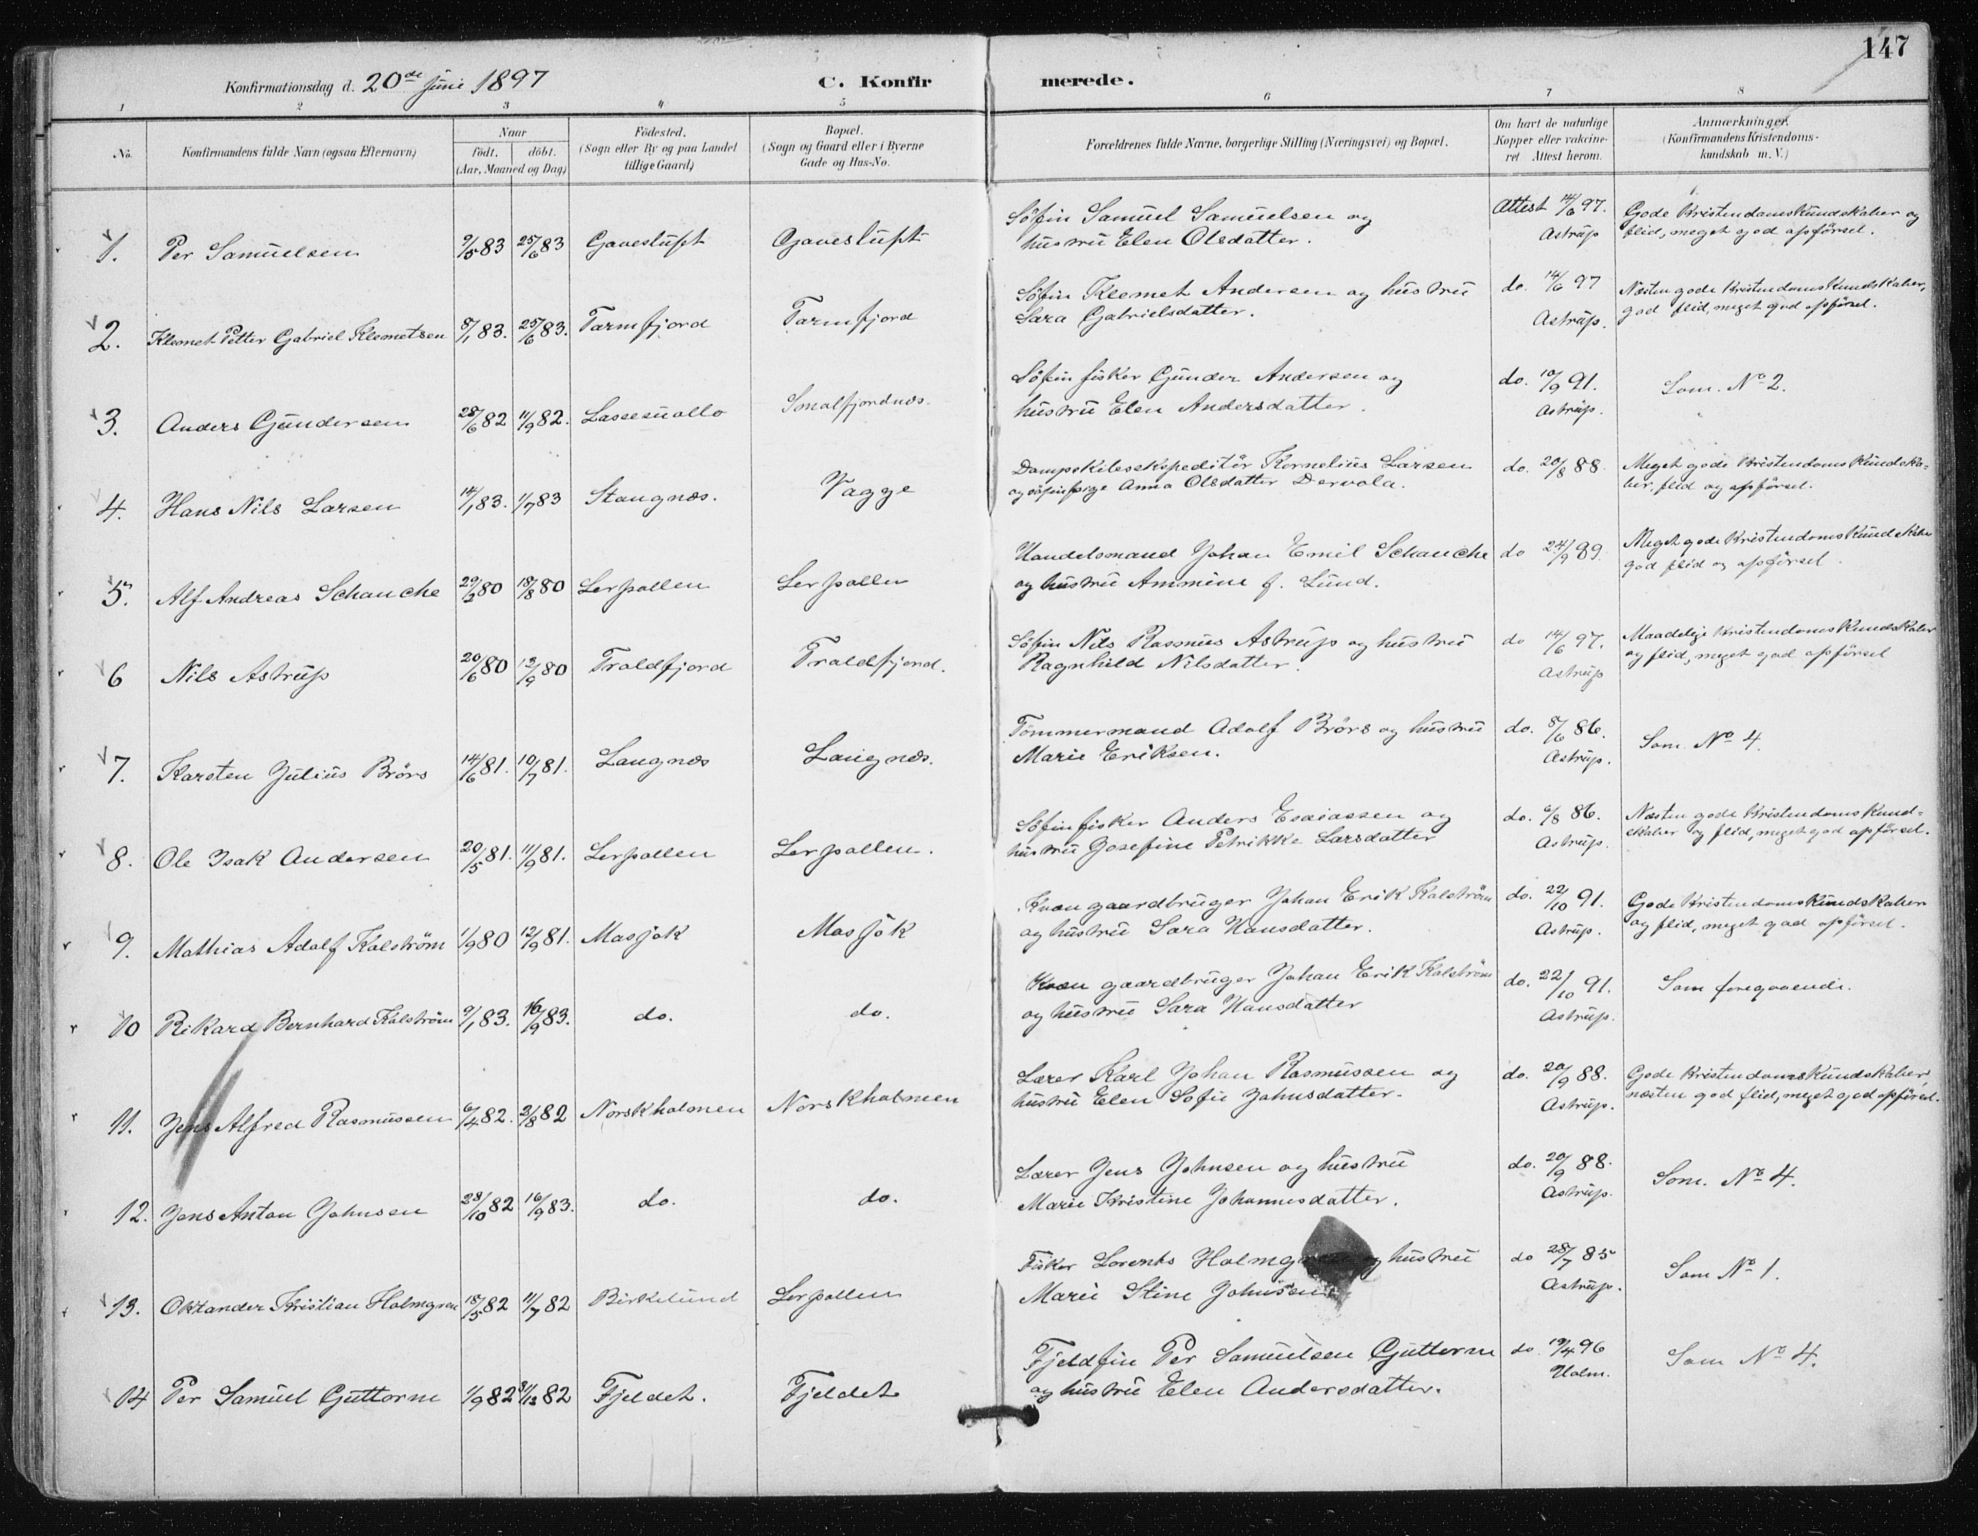 147
Konfirmationsdag d. 20de Juni 1897 C. Konfirmerede.
1 2 3 4 5 6 7 8
No. Konfirmandens fulde Navn (ogsaa Efternavn) Naar födt. döbt. (Aar, Maaned og Dag) Födested. (Sogn eller By og paa Landet tillige Gaard) Bopæl. (Sogn og Gaard eller i Byerne Gade og Hus-No. Forældrenes fulde Navne, borgerlige Stilling (Næringsvei) og Bopæl. Om havt de naturlige Kopper eller vakcineret. Attest herom. Anmærkninger. (Konfirmandens Kristendomskundskab m. V.)
1. Per Samuelsen 9/5 83 25/6 83 Gavesluft Gavesluft Söfin Samuel Samuelsen og
hustru Elen Olsdatter. Attest 14/6 97. Astrup Gode Kristendomskundskaber og
flid, meget god opförsel.
2. Klemet Petter Gabriel Klemetsen 8/1 83. 25/6 83. Tarmfjord Tarmfjord Söfin Klemet Andersen og hustru
Sara Gabrielsdatter. do. 14/6 97 Astrup. Næsten gode Kristendomskundskaber,
god flid, meget god opförsel.
3. Anders Gundersen 28/6 82 11/9 82. Lassesuollo Smalfjordnæs. Söfin fisker Gunder Andersen og
hustru Elen Andersdatter. do. 10/9 91. Astrup. Som No 2.
4. Hans Nils Larsen 14/1 83. 1/7 83 Stangnæs. Vagge Dampskibsekspeditör Kornelius Larsen
og söfinpige Anna Olsdatter Dervola. do. 20/8 88. Meget gode Kristendomskundskaber,
flid og opförsel.
5. Alf Andreas Schanche 29/2 80 18/8 80 Lerpollen Lerpollen Handelsmand Johan Emil Schanche
og hustru Ammine f. Lund. do 24/9 89. Meget gode Kristendomskundskaber
god flid og opförsel.
6 Nils Astrup 20/6 80 12/9 80 Traldfjord Traldfjord. Söfin Nils Rasmus Astrup og hustru
Ragnhild Nilsdatter. do 14/6 97. Astrup Maadelige Kristendomskundskaber
og flid, meget god opförsel
7. Karsten Julius Brörs 14/6 81. 10/7 81. Langnæs Langnæs. Tömmermand Adolf Brörs og hustru
Marie Eriksen. do. 8/6 86. Astrup. Som No 4.
8. Ole Isak Andersen 20/5 81. 11/9 81. Lerpollen Lerpollen. Söfinfisker Anders Esaiassen og
hustru Josefine Petrikke Larsdatter do. 6/8 86. Astrup. Næsten gode Kristendomskundskaber
og flid, meget god opförsel.
9. Mathias Adolf Kalström 1/9 80 12/9 81. Masjok Masjok Kvæn gaardbruger Johan Erik Kalström
og hustru Sara Hansdatter. do. 22/10 91. Astrup. Gode Kristendomskundskaber
og flid, meget god opförsel.
10 Rikard Bernhard Kalström 9/1 83. 16/9 83. do. do. Kvæn gaardbruger Johan Erik Kalström
og hustru Sara Hansdatter do. 22/10 91. Astrup. Som foregaaende.
11. Jens Alfred Rasmussen 6/4 82. 3/8 82 Norskholmen Norskholmen Lærer Karl Johan Rasmussen og
hustru Elen Sofie Johnsdatter. do. 20/9 88. Astrup. Gode Kristendomskundskaber,
næsten god flid, meget god opförsel.
12. Jens Anton Johnsen 28/10 82 16/9 83. do. do. Lærer Jens Johnsen og hustru
Marie Kristine Johannesdatter. do. 20/9 88. Astrup. Som No 4.
13. Oktander Kristian Holmgren 18/5 82 11/7 82 Birkelund Lerpollen Fisker Lorents og hustru
Marie Stine Johnsen do 28/7 85 Astrup. Som No 1.
14 Per Samuel Guttorm 1/9 82 82 Fjeldet. Fjeldet Fjeldfin Per Samuelsen Guttorm
og hustru Elen Andersdatter. do. 19/4 96 Holm. Som No 4.